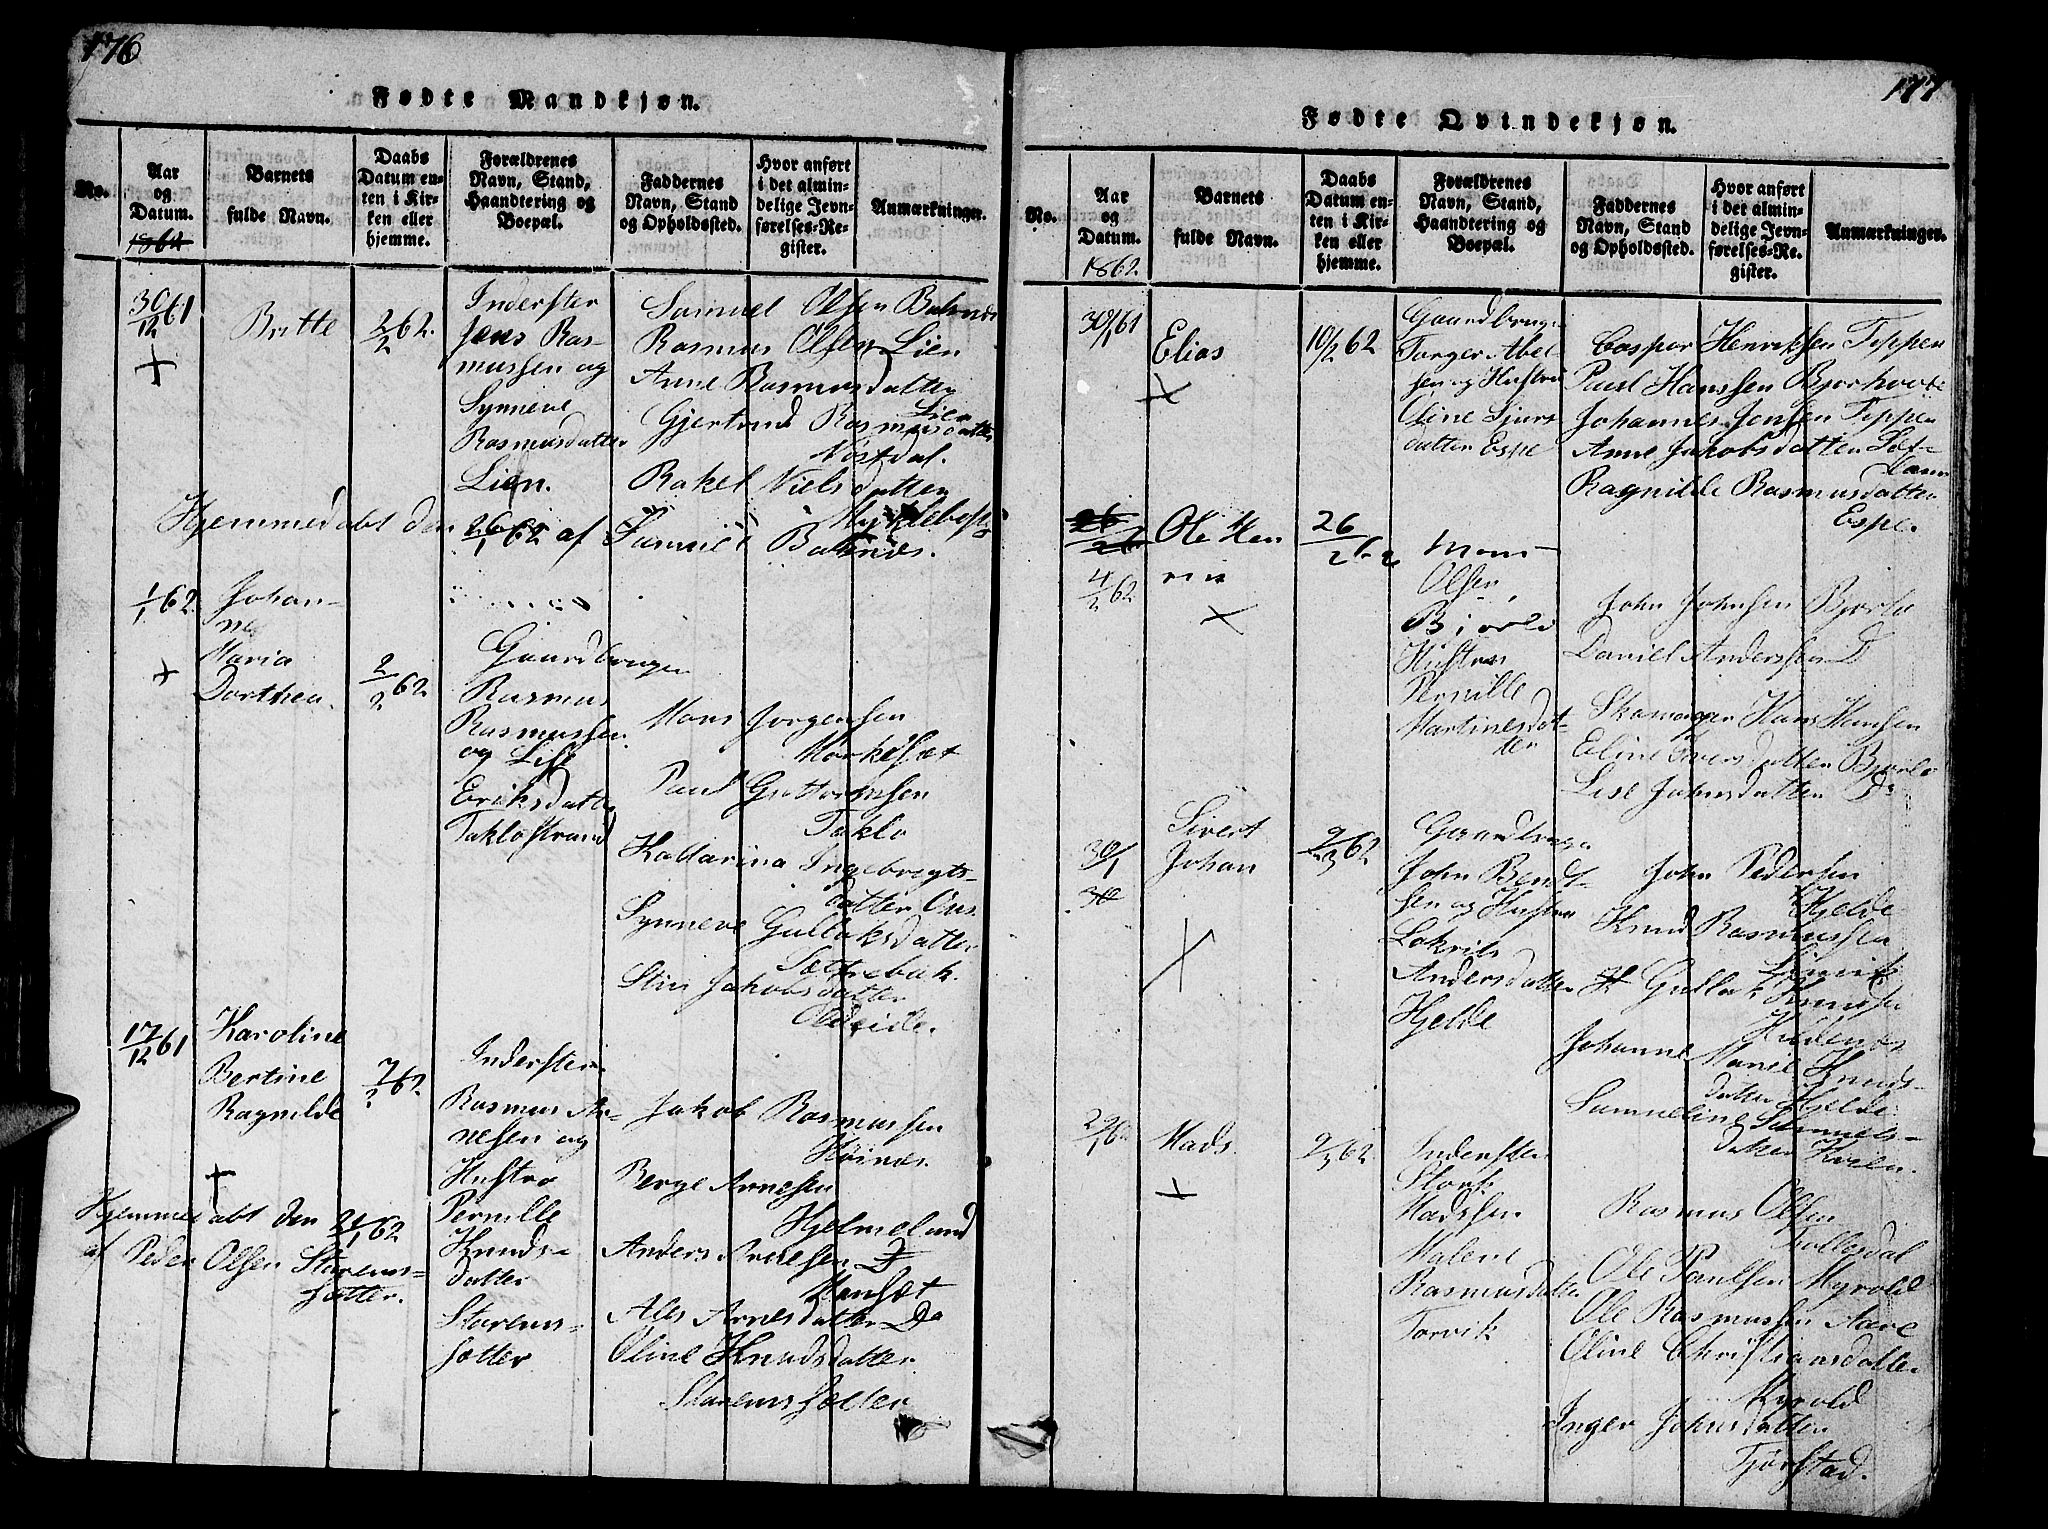 176
Fødte Mandkjøn.
No.
Aar og Datum.
Barnets fulde Navn.
Daabs Datum enten i Kirken eller hjemme.
Forældrenes Navn, Stand, Haandtering og Boepæl.
Faddernes Navn, Stand og Opholdssted.
Hvor anført i det almindelige Jevnførelses-Register.
Anmærkninger.
30/12 61
+
Britte
2/2 62.
Inderster
Jens Ras-
mussen og
Synneve
Rasmusdatter
Lien.
Samuel Olsen Balnæs
Rasmus Olsen Lien
Anne Rasmusdatter
Lien
Gjertrud Rasmusdatter
Nosdal.
Rakel Nielsdatter
Myklebost
Hjemmedøbt den 26/1 62 af Samuel Balnæs.
1/1 62.
+
Johan-
ne
Maria
Dorthea.
2/2 62
Gaardbruger
Rasmus
Rasmussen
og Lise
Eriksdatter
Taklostrand
Mons Jorgensen
Morkesæt
Paul Guttormsen
Taklo
Kattarina Ingebregts-
datter Ous
Synneve Gullaksdatter
Sættrebak.
Stin Jakobsdatter
Oldeide.
17/12 61
Karoline
Bertine
Ragnilde
+
2/2 62
Inderster
Rasmus Ar-
nesen og
Hustro
Pernille
Knuds-
datter
Starens-
sætter
Jakob Rasmussen
Höinæs.
Berge Arnesen
Hjelmeland
Anders Arnesen
Mensæt
Ales Arnesdatter Do
Oline Knudsdatter
Starenssætter
Hjemmedøbt den 21/1 62
af Peder Olsen Starens-
sætter.
177
Fødte Qvindekjøn.
No.
Aar og Datum.
1862
Barnets fulde Navn.
Daabs Datum enten i Kirken eller hjemme.
Forældrenes Navn, Stand, Haandtering og Boepæl.
Faddernes Navn, Stand og Opholdssted.
Hvor anført i det almindelige Jevnførelses-Register.
Anmærkninger.
30/1 61
Elias
+
10/2 62
Gaardbruger
Torger Abel-
sen og Hustro
Oline Sjurs
datter Espe
Casper Henriksen Teppen
Paul Hanssen Bjorhovde
Johannes Jonsen Teppen
Anne Jakobsdatter Sæt-
Ragnilde Rasmusdatter
Espe.
4/2 62
Ole Hen
rik
+
26/2 62
Mons
Olsen
Bjørlo
Hustro
Pernille
Martinesdat-
ter
John Johnsen Bjorlo
Daniel Anderssen D
Skomager Hans Hansen
Eline Iversdatter Bjorlo
Lise Johnsdatter Do
30/1
Sivert
Johan
+
2/3 62
Gaardbruger
John Bendt-
sen og Hustro
Lokris
Andersdatter
Hjelde
John Pedersen
Hjelde
Knud Rasmussen
Gullak Knudsen
Hildenæs
Johanne Marie Knuds-
datter Hjelde
Sameline Samuels-
datter
22/1 62
Mads.
+
2/3 62.
Indersten
Stork
Madssen
Malene
Rasmusdatter
Torvik
Rasmus Olsen
Totlesdal
Ole Paulsen Myrold
Ole Rasmussen Aare
Oline Christiansdatter
Myrold
Inger Johnsdatter
Tjørstad.